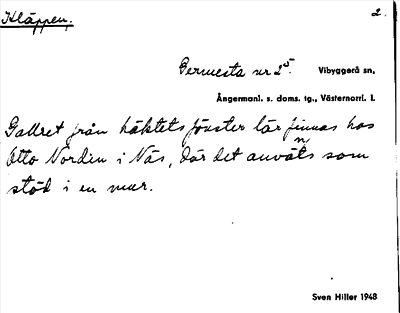 Kläppen.
2.
Germesta nr 2⁵. Vibyggerå sn,
Ångermanl. s. doms. tg., Västernorrl. l.
Gallret från häktets fönster lär finnas hos
Otto Nordin i Näs, där det använts som
stöd i en mur.
Sven Hiller 1948